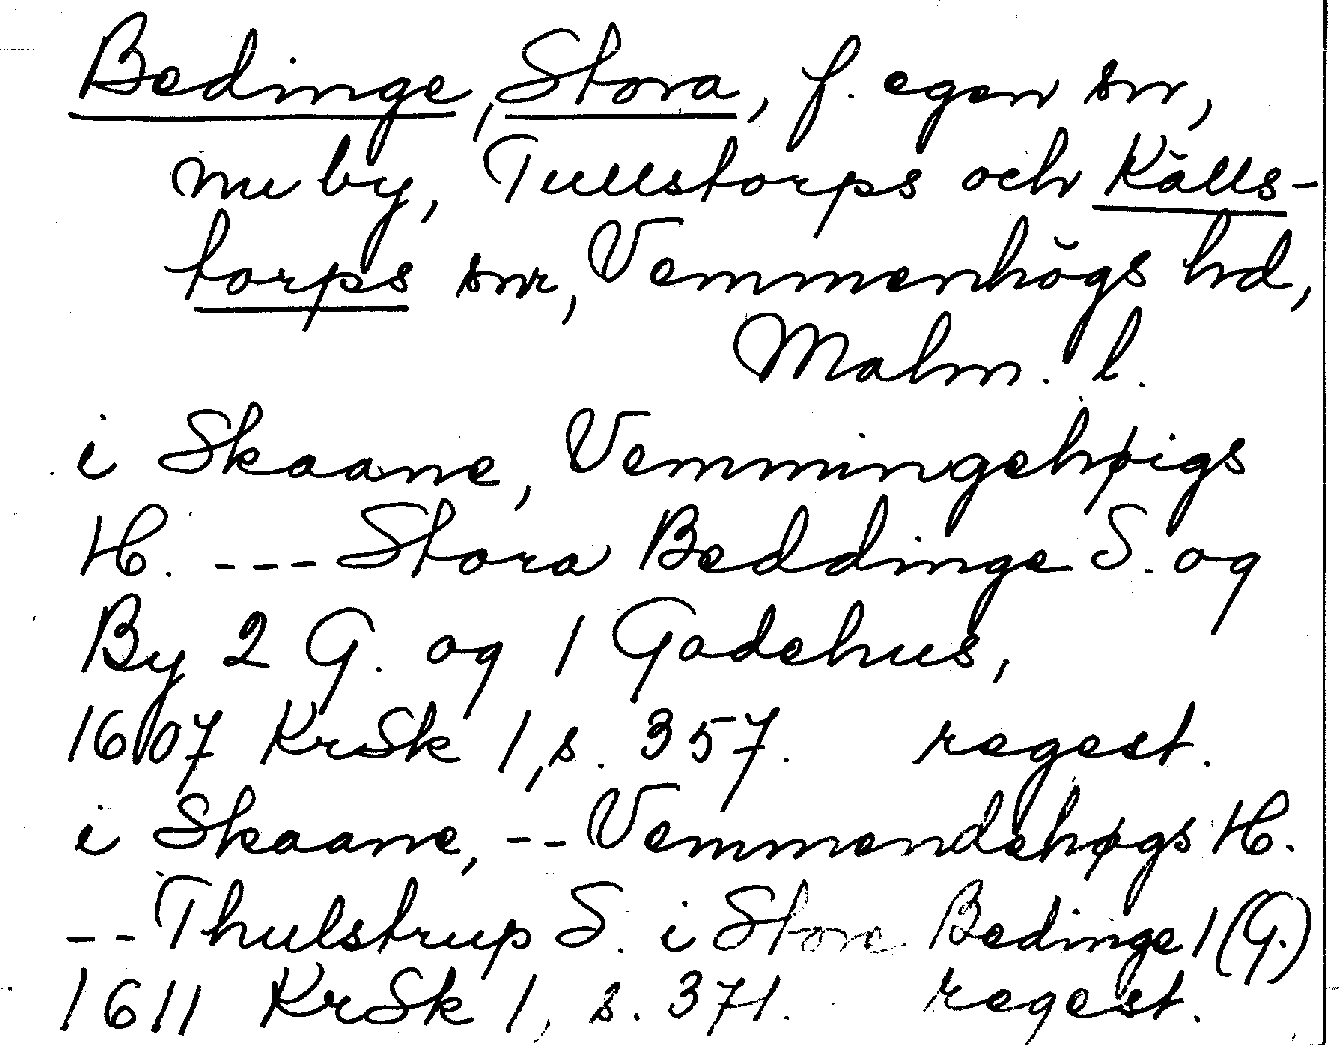 Bedinge, Stora, f. egen sn,
nu by, Tullstorps och Källs-
torps snr, Vemmenhögs hd,
Malm. l.
i Skaane, Vemmingehøigs
H. --- Stora Beddinge S. og
By 2 G. og 1 Gadehus,
1607 KrSk 1, s. 357. regest.
i Skaane, -- Vemmendehøgs H.
-- Thulstrup S. i Store Bedinge 1 (G.)
1611 KrSk 1, s. 371. regest.